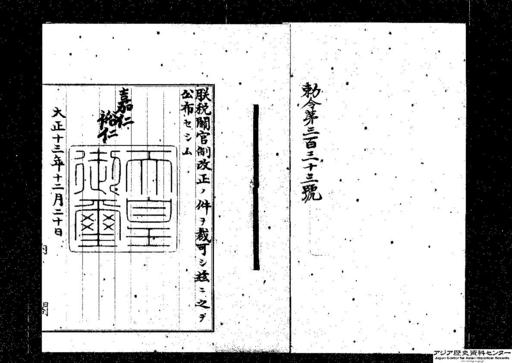 勅令第三百三十三號
朕税關官制改正ノ件ヲ裁可シ茲ニ之ヲ
公布セシム
嘉仁
裕仁
天皇
御璽
大正十三年十二月二十日
内閣
アジア歴史資料センター
Japan Center for Asian Historical Records